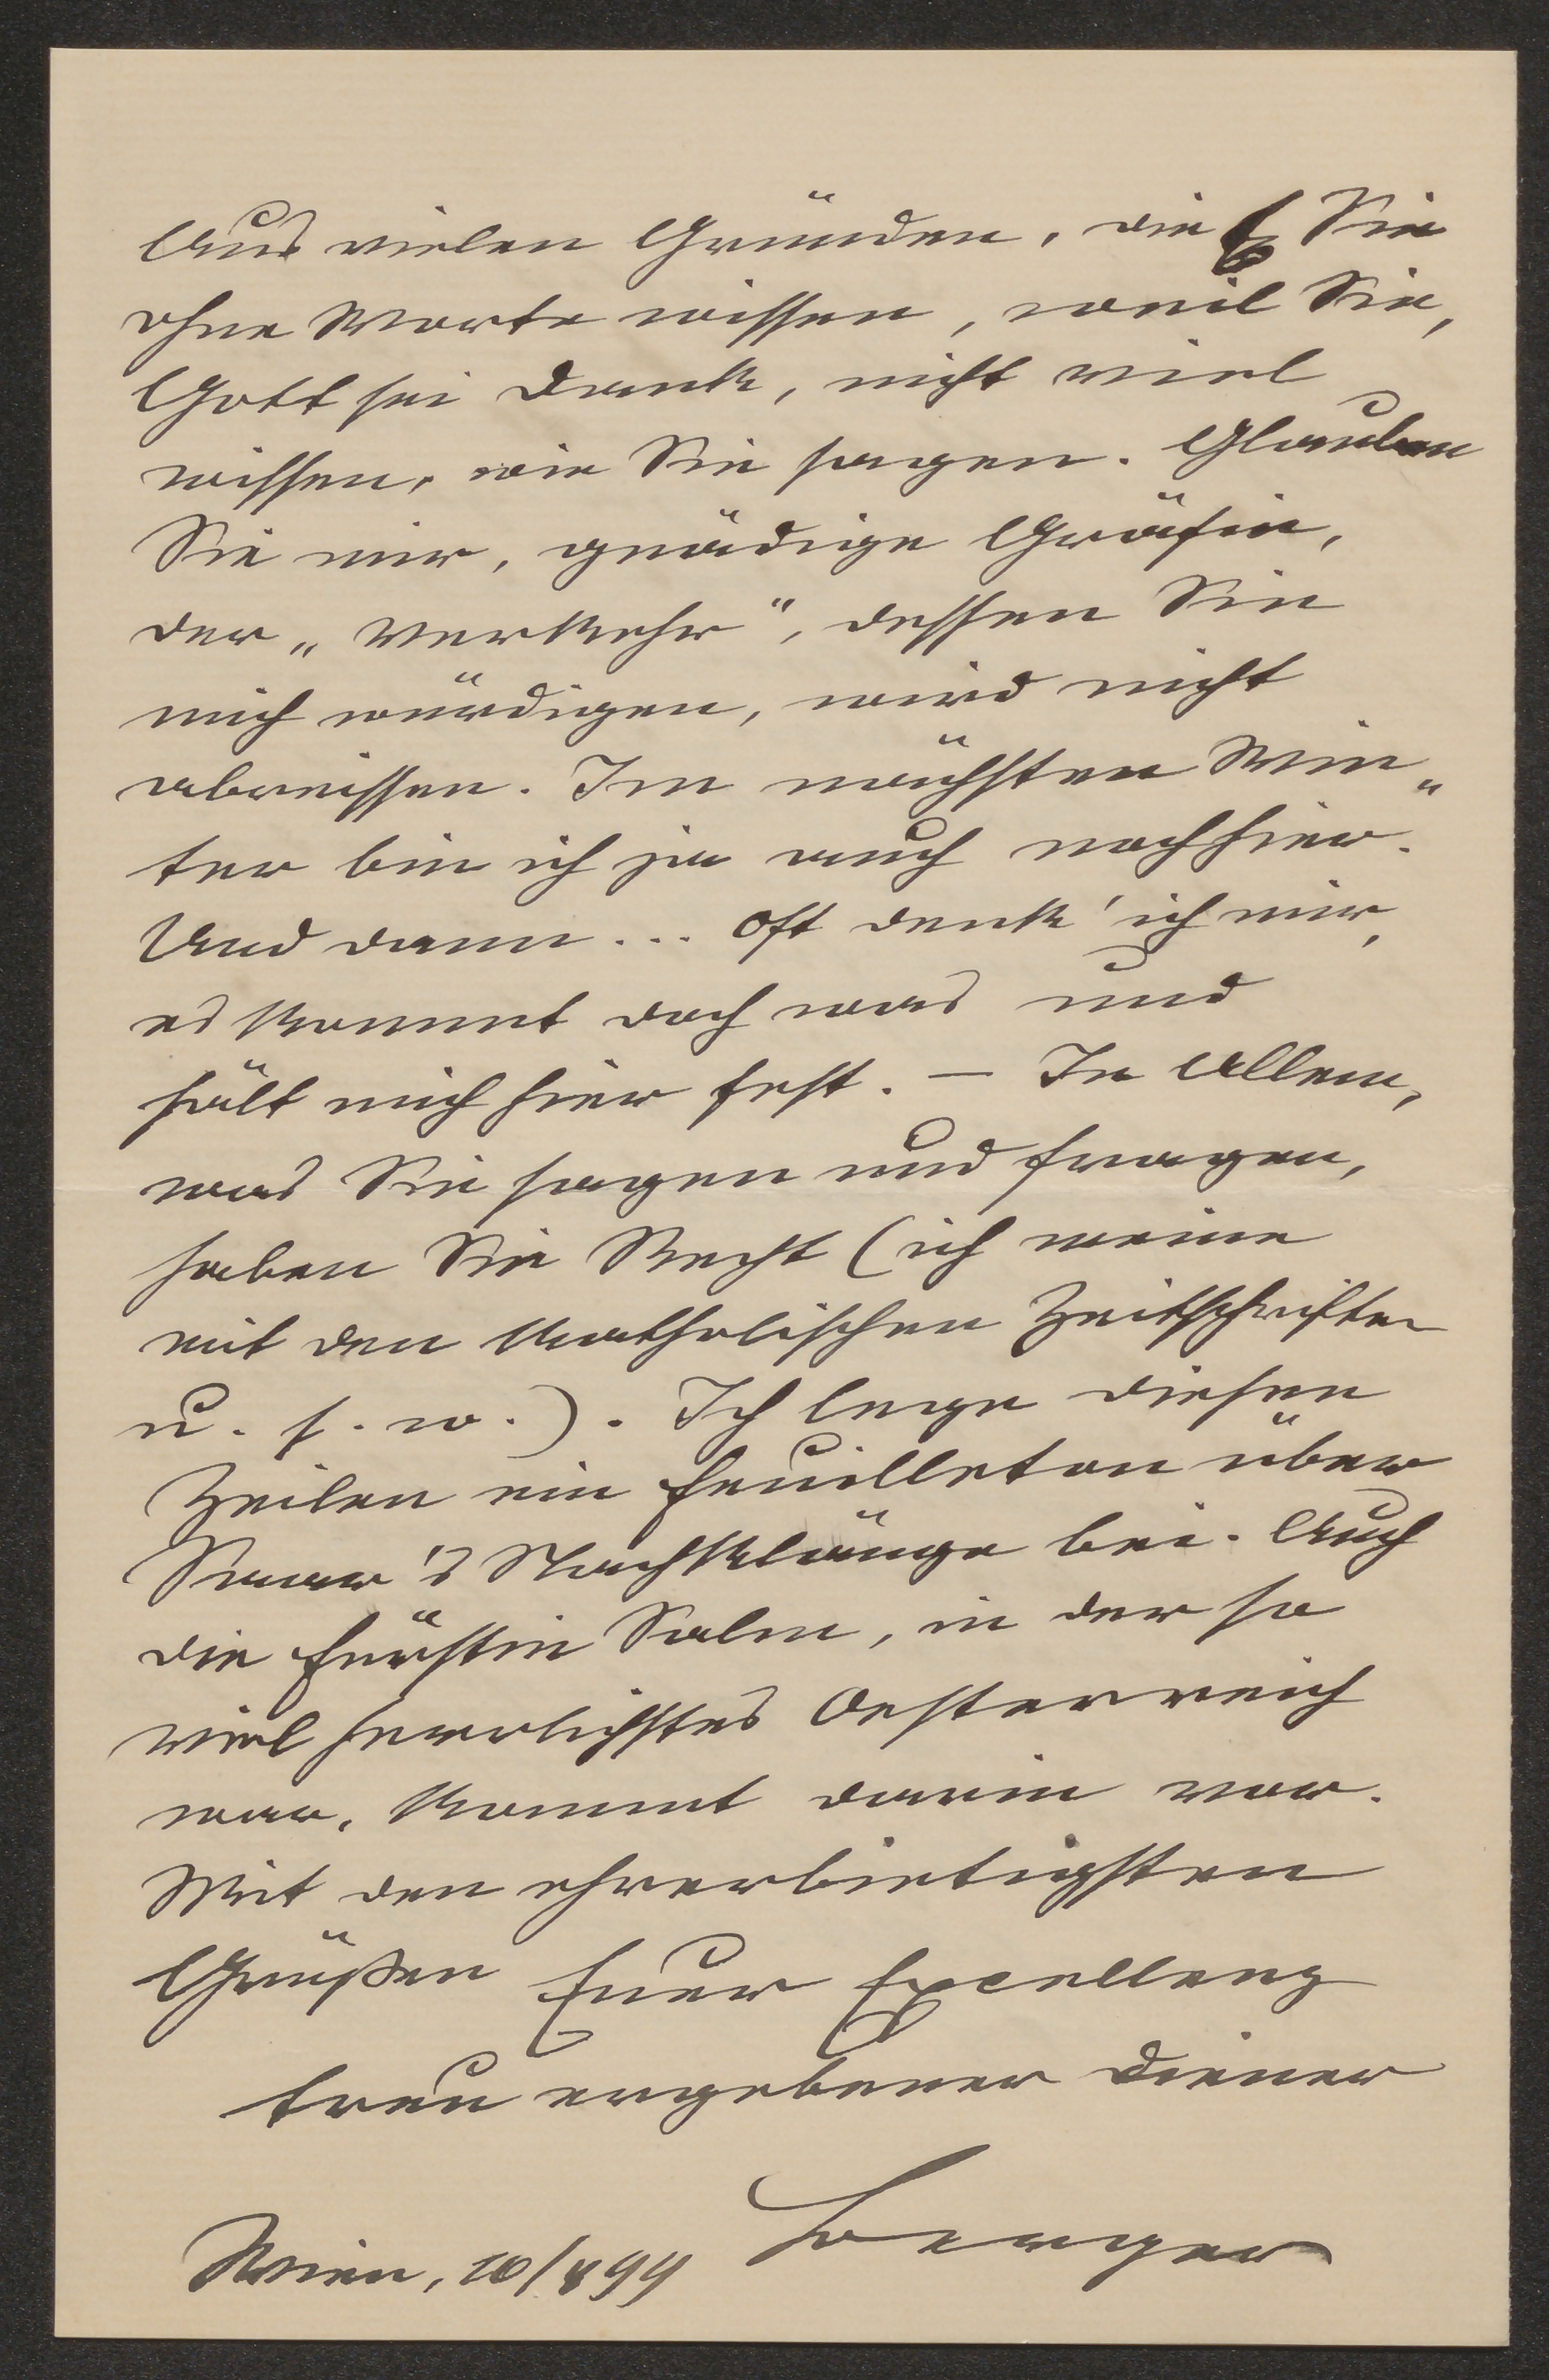 Aus vielen Gründen, die Sie
ohne Worte wissen, weil Sie,
Gott sei Dank, nicht viel
wissen, wie Sie sagen. Glauben
Sie mir, gnädige Gräfin,
der „Verkehr“, dessen Sie
mich würdigen, wird nicht
abreissen. Im nächsten Win„
ter bin ich ja auch noch hier.
Und dann... Oft denk' ich mir,
es kommt doch was und
hält mich hier fest. — In Allem,
was Sie sagen und fragen,
haben Sie Recht (ich meine
mit den katholischen Zeitschriften
u. s. w.). Ich lege diesen
Zeilen ein Feuilleton über
Saar's Nachklänge bei. Auch
die Fürstin Salm, in der so
viel herrlichstes Oesterreich
war, kommt darin vor.
Mit den ehrerbietigsten
Grüßen Euer Excellenz
treu ergebener Diener
Berger
Wien, 10/899